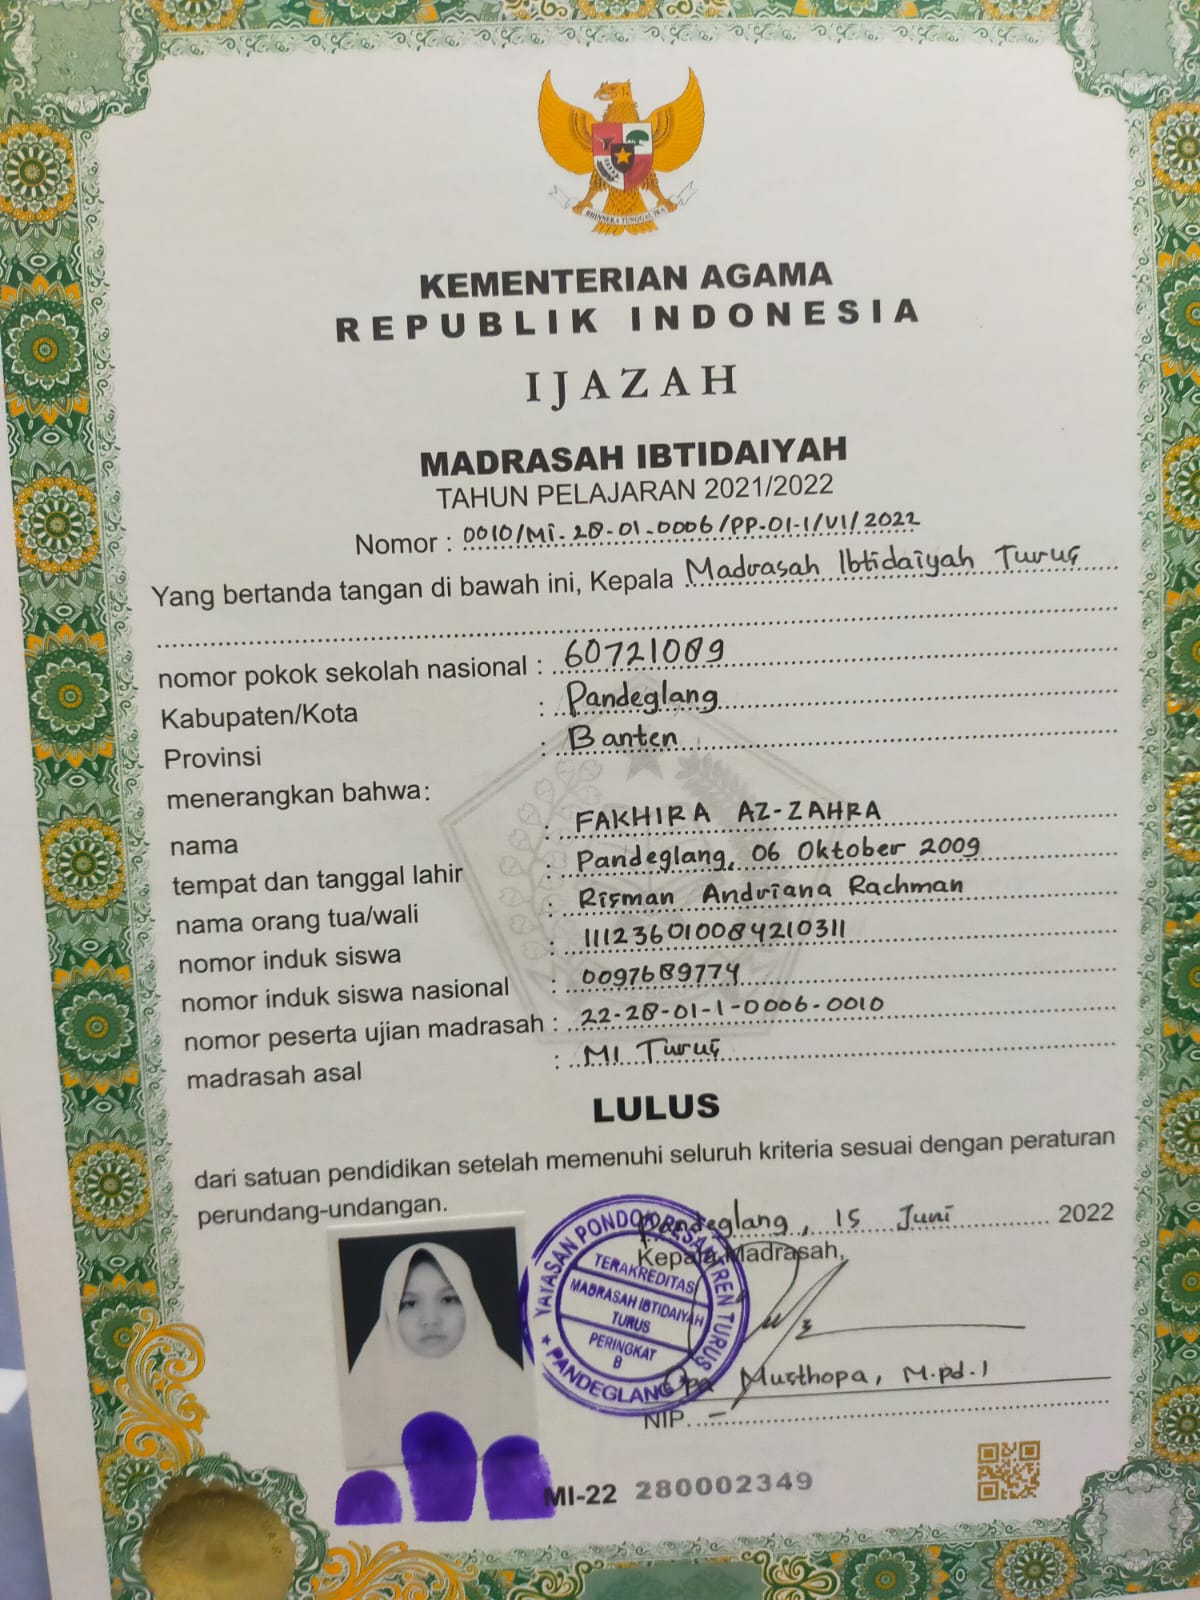 BHINNEKA TUNGGAL IKA
KEMENTERIAN AGAMA
REPUBLIK INDONESIA
IJAZAH
MADRASAH IBTIDAIYAH
TAHUN PELAJARAN 2021/2022
Nomor : 0010/Mi-28-01-0006/PP-01-1/VI/2022
Yang bertanda tangan di bawah ini, Kepala Madrasah Ibtidaiyah Turus
nomor pokok sekolah nasional : 60721089
Kabupaten/Kota : Pandeglang
Provinsi : Banten
menerangkan bahwa:
nama : FAKHIRA AZ-ZAHRA
tempat dan tanggal lahir : Pandeglang, 06 Oktober 2009
nama orang tua/wali : Risman Andriana Rachman
nomor induk siswa : 111236010084210311
nomor induk siswa nasional : 0097689774
nomor peserta ujian madrasah : 22-28-01-1-0006-0010
madrasah asal : MI Turus
LULUS
dari satuan pendidikan setelah memenuhi seluruh kriteria sesuai dengan peraturan
perundang-undangan.
Pandeglang, 15 Juni 2022
Kepala Madrasah,
YAYASAN PONDOK PESANTREN TURUS
TERAKREDITAS
MADRASAH IBTIDAIYAH
TURUS
PERINGKAT
B
★ PANDEGLANG ★
Opa Musthopa, M.pd.I
NIP. -
MI-22 280002349